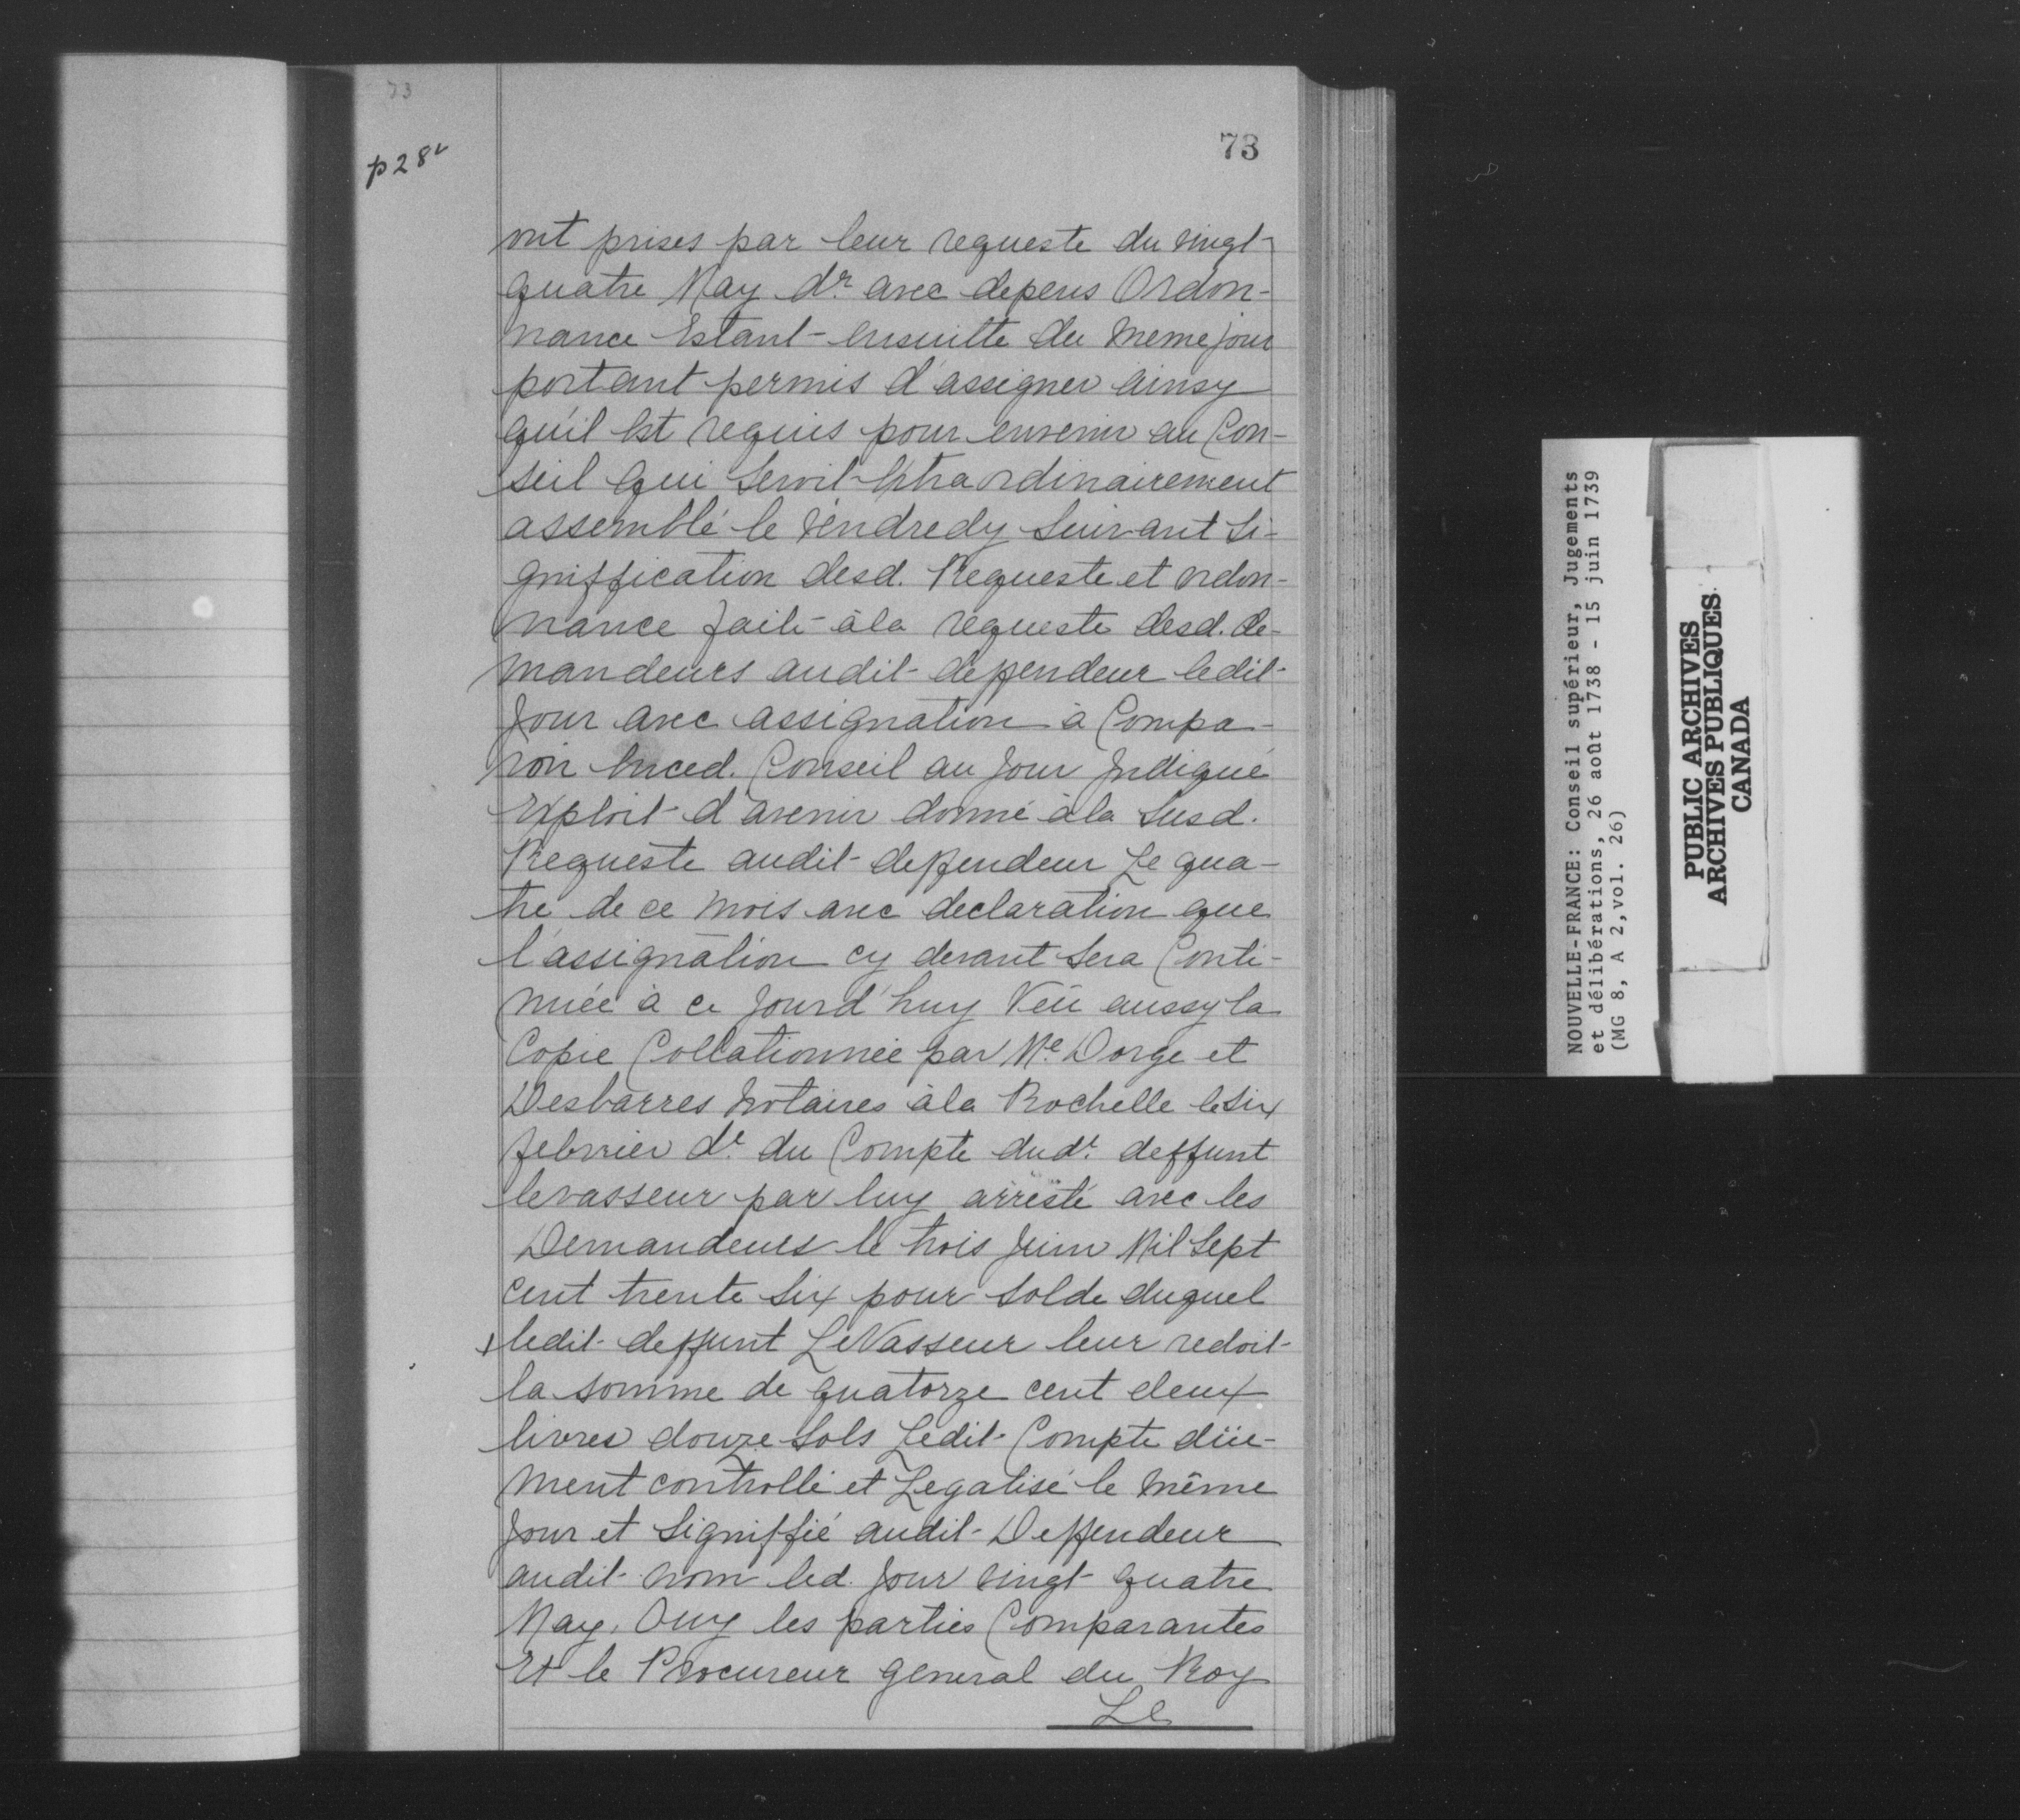 73
73
p 28v
ont prises par leur requeste du vingt-
quatre May dr. avec depens Ordon-
nance Estant ensuitte du meme jour
portant permis d'assigner ainsy
qu'il Est requis pour envenir au Con-
seil qui Seroit Extraordinairement
assemblé le Vendredy Suivant Si-
gniffication desd. Requeste et ordon-
nance faite à la requeste desd. de-
mandeurs audit deffendeur ledit
Jour avec assignation à Compa-
roir Enced. Conseil au Jour Indiqué
Exploit d'avenir donné à la Susd.
Requeste audit deffendeur Le qua-
tre de ce mois avec declaration que
l'assignation cy devant Sera Conti-
nuée à ce Jourd'huy Veü aussy la
Copie Collationnée par Me. Dorge et
Desbarres Notaires à la Rochelle le Six
febvrier dr. du Compte dudt. deffunt
levasseur par luy arresté avec les
Demandeurs le trois Juin Mil Sept
cent trente Six pour Solde duquel
ledit deffunt LeVasseur leur redoit
la somme de quatorze cent deux
livres douze Sols Ledit Compte düe-
ment controllé et Legalisé le même
Jour et Signiffié audit Deffendeur
audit nom led. Jour vingt quatre
May, Ouy les parties Comparantes
Et le Procureur general du Roy
Le
NOUVELLE-FRANCE: Conseil supérieur, Jugements
et délibérations, 26 août 1738 - 15 juin 1739
(MG 8, A 2, vol. 26)
PUBLIC ARCHIVES
ARCHIVES PUBLIQUES
CANADA